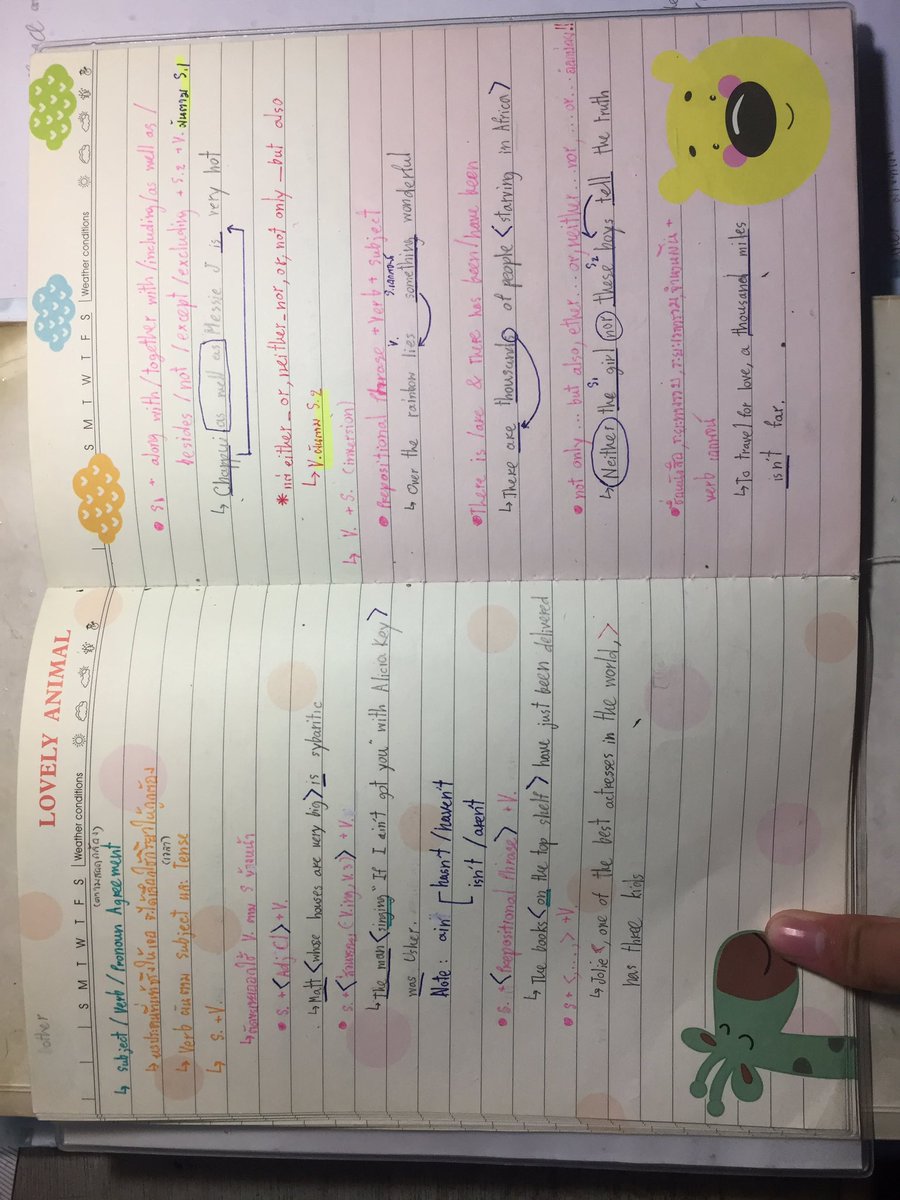 LOVELY ANIMAL
S M T W T F S Weather conditions
↳ Subject / Verb / Pronoun Agreement (ความสอดคล้อง)
↳ Verb ผันตาม Subject และ Tense (เวลา)
↳ S. + V.
• S. + <Adj Cl> + V.
↳ Matt <whose houses are very big> is sybaritic
• S. + <(V.ing, V.3)> + V.
↳ The man <singing "If I ain't got you" with Alicia Key>
was Usher.
Note : ain' [ hasn't / haven't
isn't / aren't
• S. + <Prepositional Phrase> + V.
↳ The books <on the top shelf> have just been delivered
• S + <,...,> + V.
↳ Jolie <, one of the best actresses in the world,>
has three kids
S M T W T F S Weather conditions
• S.1 + along with / together with / including / as well as /
besides / not / except / excluding + S.2 + V. ผันตาม S.1
↳ Champui as well as Messie J is very hot
* แต่ either _ or, neither _ nor, or, not only _ but also
↳ V. ผันตาม S.2
↳ V. + S. (inversion)
• Prepositional Phrase + Verb + Subject
↳ Over the rainbow lies something wonderful
V.
• There is / are & There has been / have been
↳ There are thousands of people <starving in Africa>
• not only ... but also, ether ... or, neither ... nor, ... or ...
↳ Neither the girl nor these boys tell the truth
S1 S2
verb เอกพจน์
↳ To travel for love, a thousand miles
isn't far.